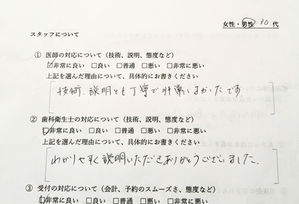 女性・男性 30代
スタッフについて
① 医師の対応について（技術、説明、態度など）
☑非常に良い □良い □普通 □悪い □非常に悪い
上記を選んだ理由について、具体的にお書きください
技術、説明とも丁寧で
② 歯科衛生士の対応について（技術、説明、態度など）
☑非常に良い □良い □普通 □悪い □非常に悪い
上記を選んだ理由について、具体的にお書きください
わかりやすく説明いただきありがとうございました。
③ 受付の対応について（会計、予約のスムーズさ、態度など）
☑非常に良い □良い □普通 □悪い □非常に悪い